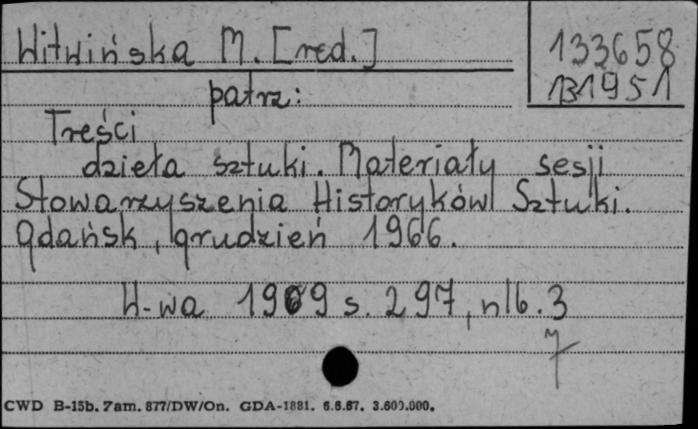 Witwińska M. [red.]
133658
131951
patrz:
Treści
dzieła sztuki. Materiały sesji
Stowarzyszenia Historyków Sztuki.
Gdańsk, grudzień 1966.
W-wa 1969 s. 297, nlb. 3
CWD B-15b. Zam. 877/DW/On. GDA-1881. 6.6.67. 3.600.000.